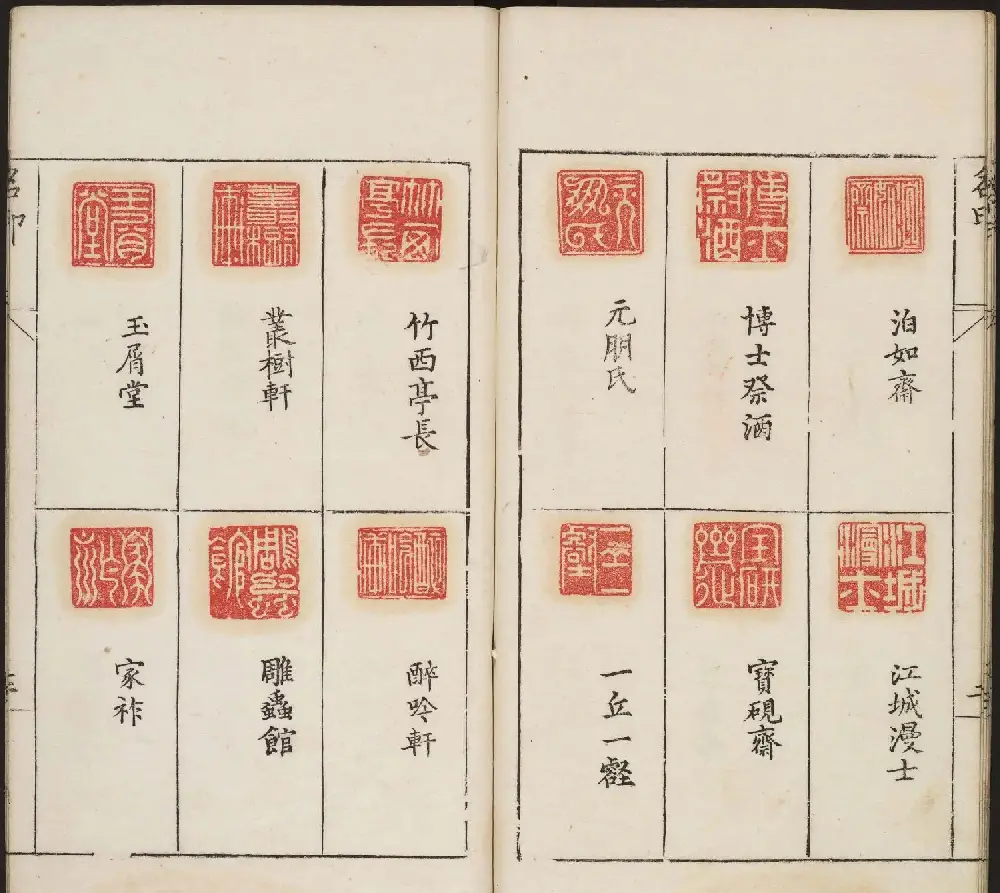 泊如齋
博士祭酒
元朋氏
江城漫士
寶硯齋
一丘一壑
竹西亭長
叢樹軒
玉屑堂
醉吟軒
雕蟲館
家祚